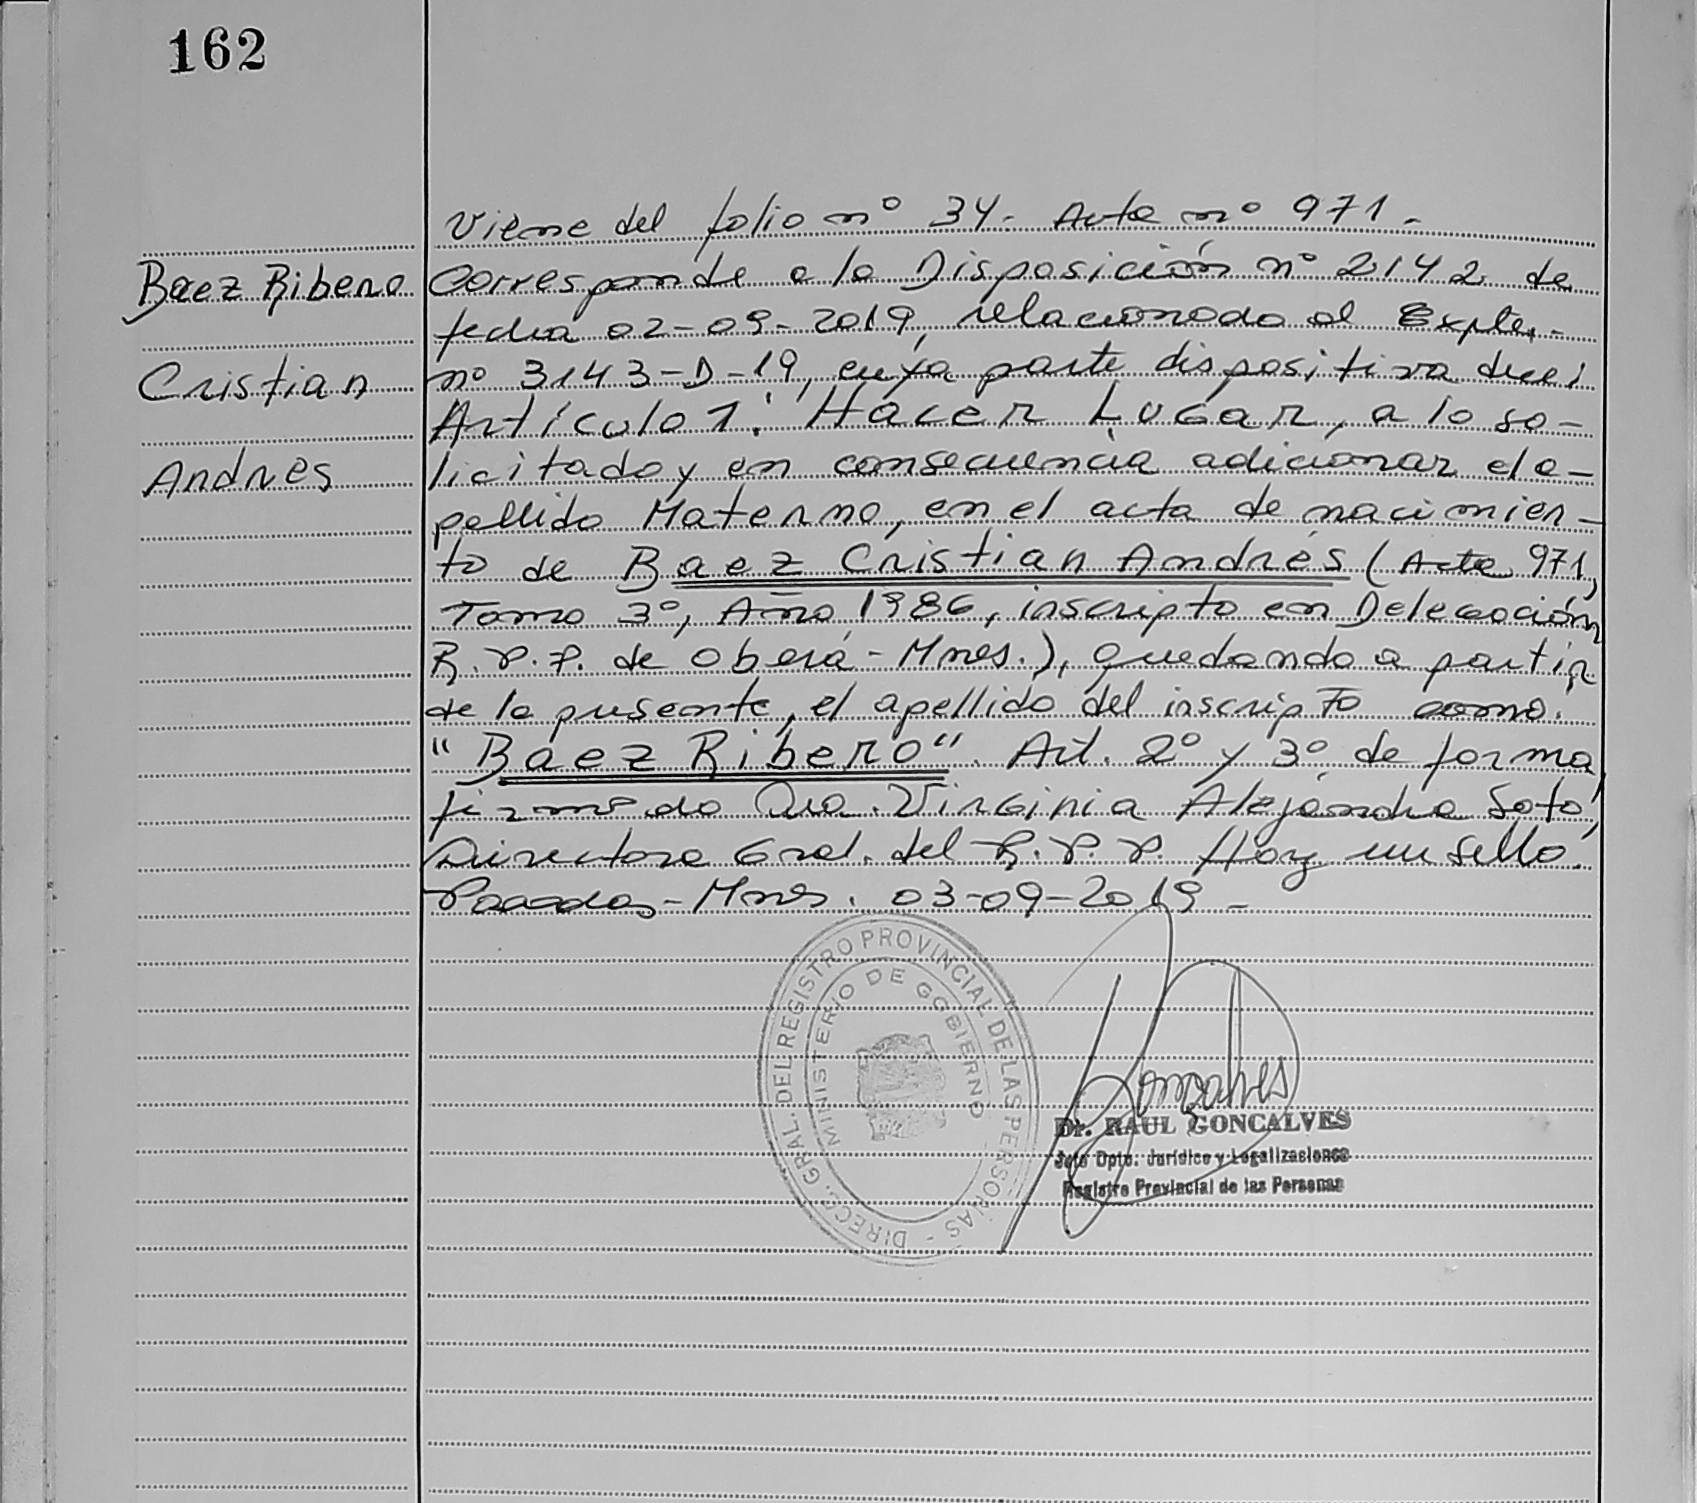 162
Viene del folio nº 34. Acta nº 971.
Baez Ribero
Cristian
Andres
Corresponde a la Disposición nº 2142 de
fecha 02-09-2019, relacionado al Expte.
nº 3143-D-19, cuya parte dispositiva dice:
Artículo 1: Hacer Lugar, a lo so-
licitado y en consecuencia adicionar el a-
pellido Materno, en el acta de nacimien-
to de Baez Cristian Andrés (Acta 971,
Tomo 3º, Año 1986, inscripto en Delegación
R.P.P. de Oberá - Mnes.), quedando a partir
de la presente, el apellido del inscripto como:
"Baez Ribero". Art. 2º y 3º de forma
firmado Dra. Virginia Alejandra Soto,
Directora Gral. del R.P.P. Hay un sello.
Posadas - Mnes. 03-09-2019 -
DIRECC. GRAL. DEL REGISTRO PROVINCIAL DE LAS PERSONAS -
MINISTERIO DE GOBIERNO
Goncalves
Dr. RAUL GONCALVES
Jefe Dpto. Jurídico y Legalizaciones
Registro Provincial de las Personas